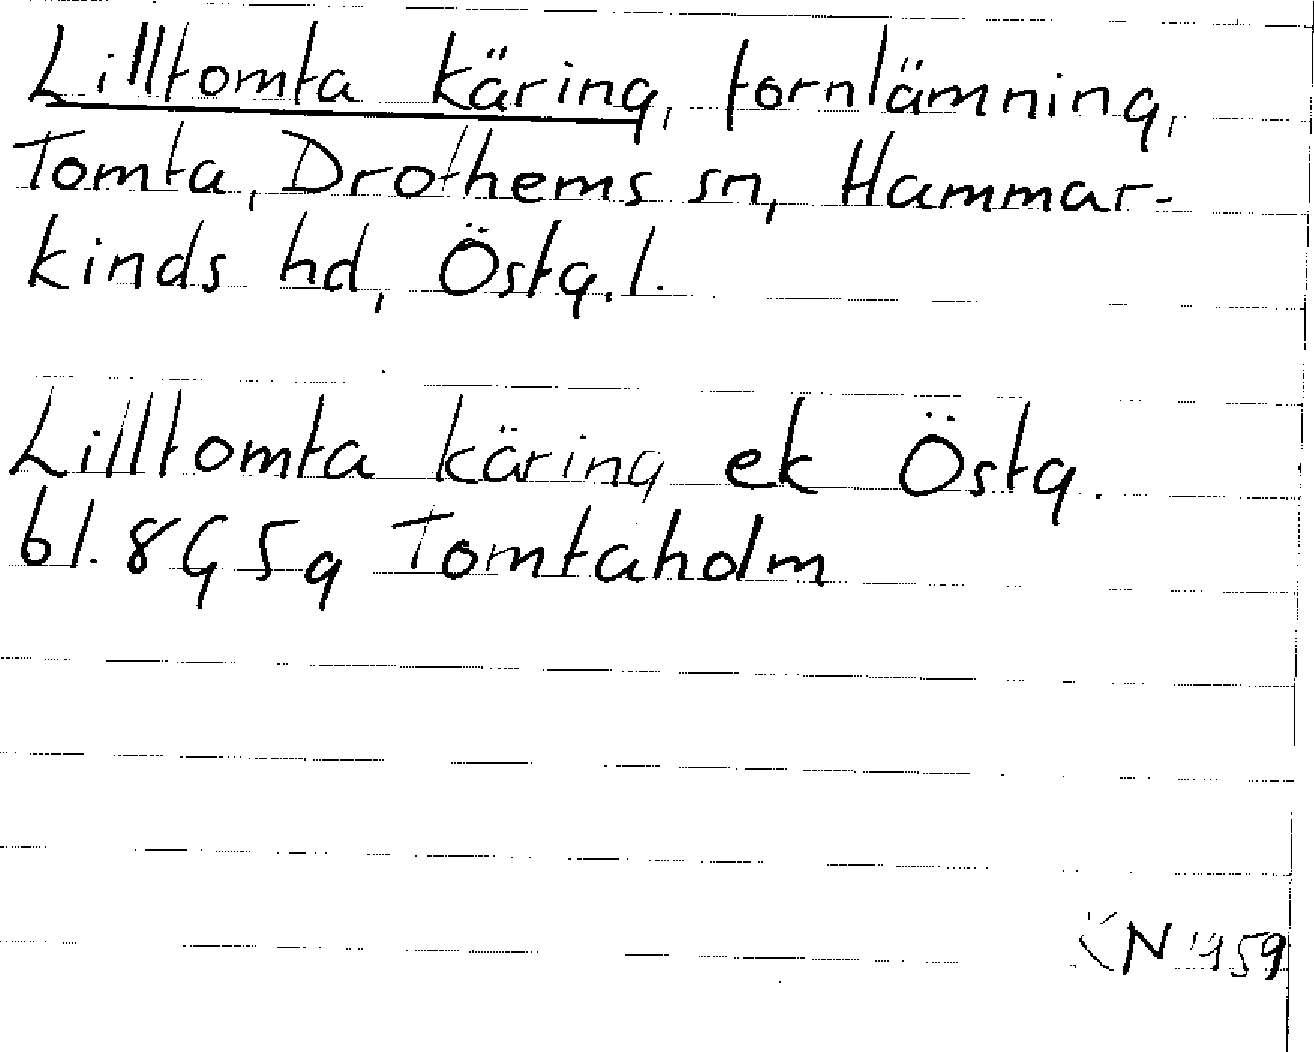 Lilltomta käring, fornlämning,
Tomta, Drothems sn, Hammar-
kinds hd, Östg. l.
Lilltomta käring ek Östg.
bl. 8G5g Tomtaholm
KN 1959